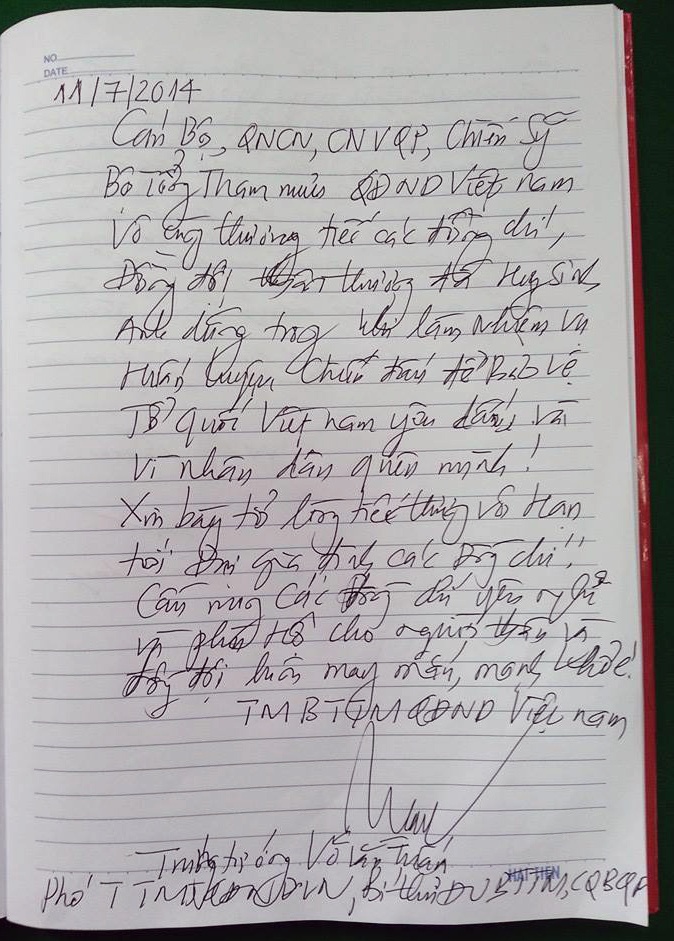 NO
DATE
11/7/2014
Cán Bộ, QNCN, CNVQP, Chiến Sỹ
Bộ Tổng Tham mưu QĐND Việt nam
Vô cùng thương tiếc các đồng chí,
Đồng đội thân thương đã Huy Sinh
Anh dũng trong khi làm Nhiệm vụ
Huấn luyện Chiến đấu để Bảo vệ
Tổ quốc Việt nam yêu dấu và
Vì nhân dân quên mình!
Xin bày tỏ lòng tiếc thương vô Hạn
tới gia đình các Đồng chí!
Cầu mong Các Đồng chí yên nghỉ
và phù Hộ cho người thân và
đồng đội luôn may mắn, mạnh khỏe!
TMBTTMQĐND Việt nam
Trung tướng Võ Văn Tuấn
HẢI TIẾN
Phó TTMTQĐNDVN, Bí thư ĐUBTTM, CQBQP